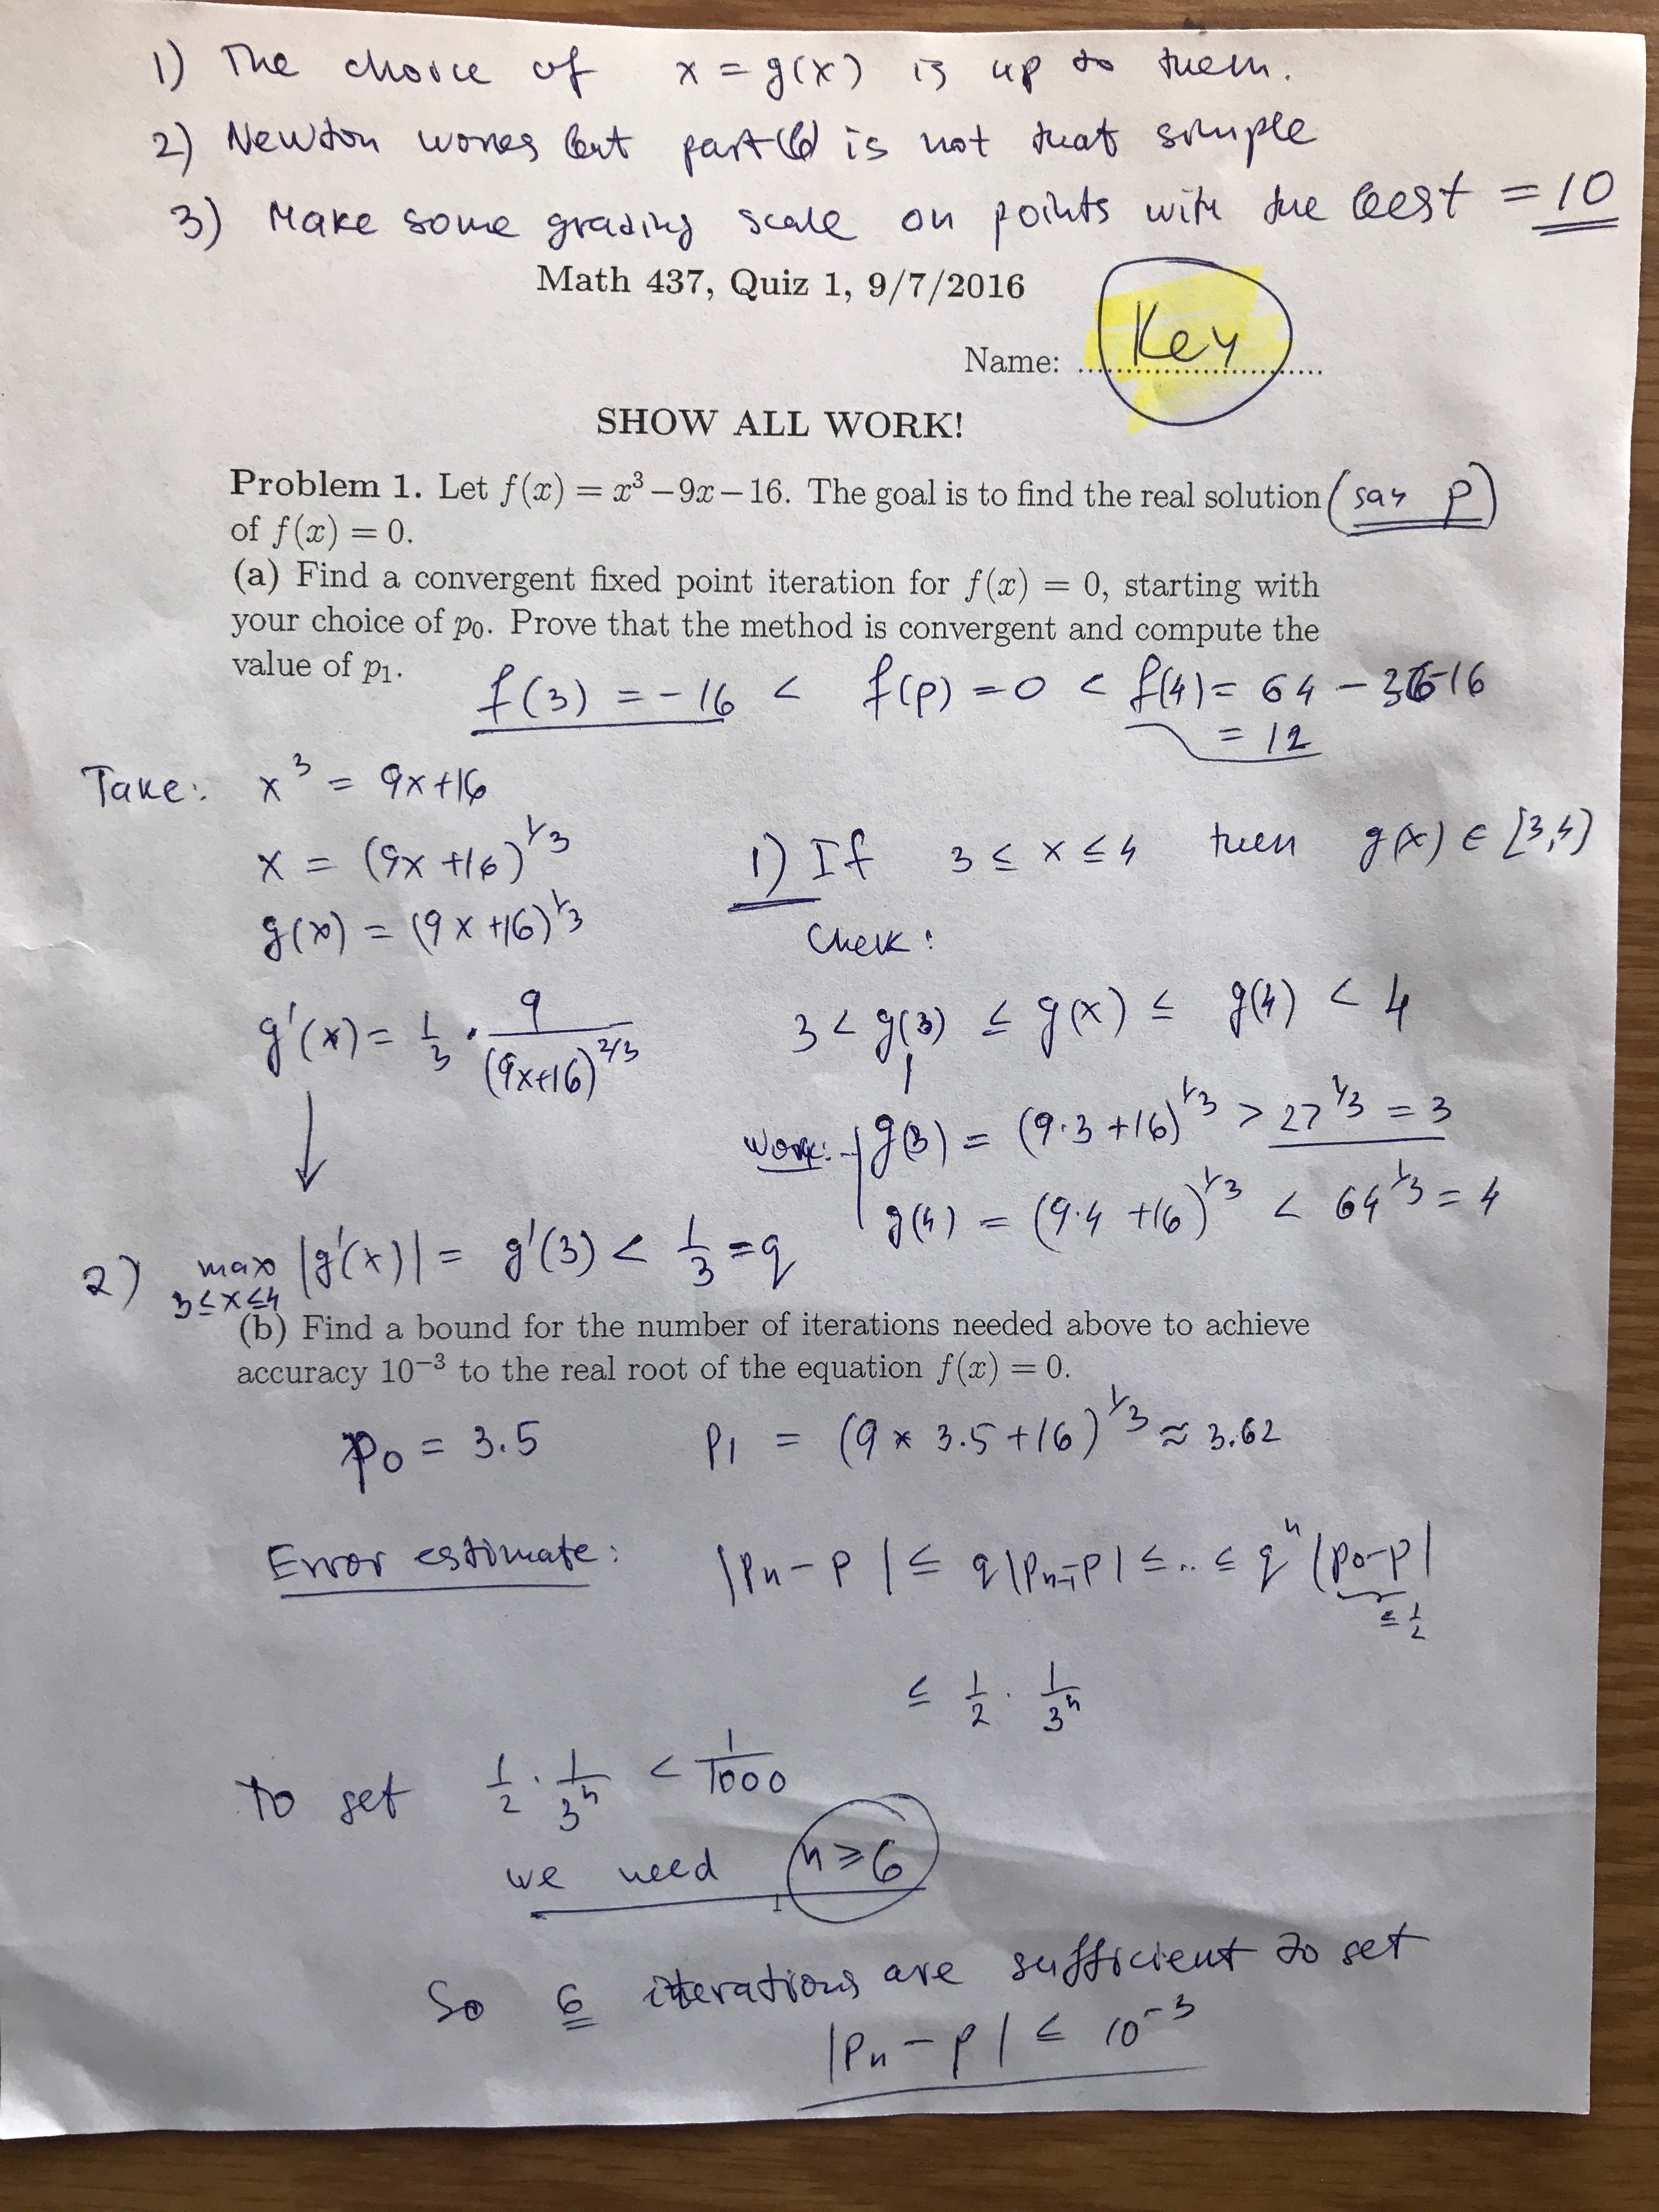 1) The choice of x = g(x) is up to them.
2) Newton works but part (b) is not that simple
3) Make some grading scale on points with the best = 10
Math 437, Quiz 1, 9/7/2016
Name: Key
SHOW ALL WORK!
Problem 1. Let f(x) = x³ − 9x − 16. The goal is to find the real solution (say p)
of f(x) = 0.
(a) Find a convergent fixed point iteration for f(x) = 0, starting with
your choice of p₀. Prove that the method is convergent and compute the
value of p₁.
f(3) = −16 < f(p) = 0 < f(4) = 64 − 36 − 16
= 12
Take: x³ = 9x+16
x = (9x+16)^{1/3}
g(x) = (9x+16)^{1/3}
g'(x) = 1/3 · 9/(9x+16)^{2/3}
1) If 3 ≤ x ≤ 4 then g(x) ∈ [3,4]
Check:
3 < g(3) ≤ g(x) ≤ g(4) < 4
Work: g(3) = (9·3+16)^{1/3} > 27^{1/3} = 3
g(4) = (9·4+16)^{1/3} < 64^{1/3} = 4
2) max |g'(x)| = g'(3) < 1/3 = q
3≤x≤4
(b) Find a bound for the number of iterations needed above to achieve
accuracy 10⁻³ to the real root of the equation f(x) = 0.
p₀ = 3.5 p₁ = (9 × 3.5+16)^{1/3} ≈ 3.62
Error estimate: |pₙ − p| ≤ q|pₙ₋₁−p| ≤ .. ≤ qⁿ |p₀−p|
≤ 1/2
≤ 1/2 · 1/3ⁿ
To get 1/2 · 1/3ⁿ < 1/1000
we need n ≥ 6
1
So 6 iterations are sufficient to get
|pₙ − p| ≤ 10⁻³